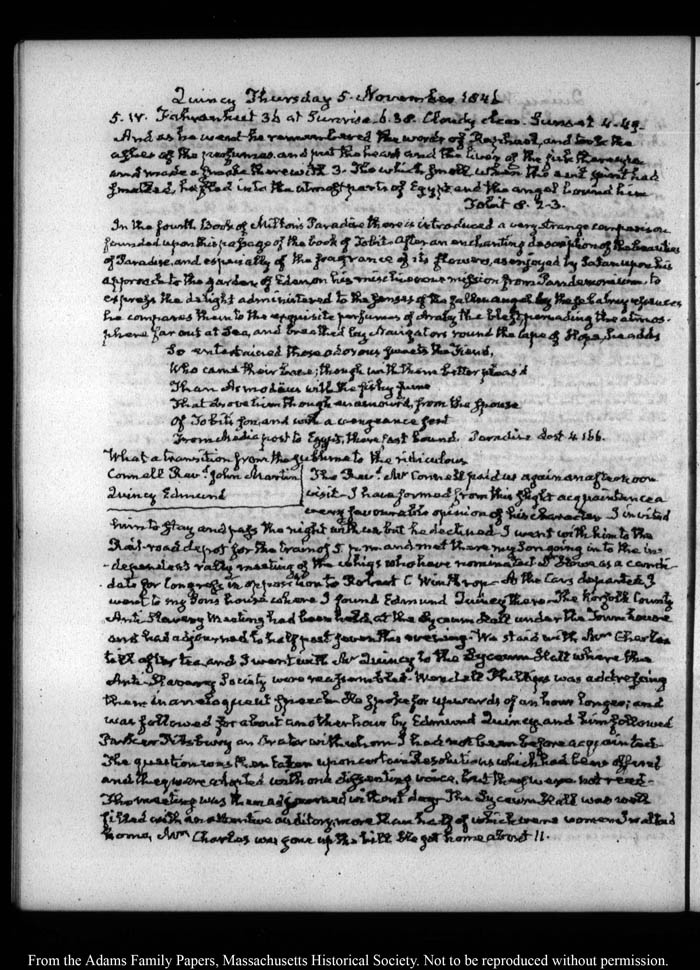 Quincy Thursday 5. November 1846
5. IV. Fahrenheit 36 at Sunrise 6.38. Cloudy clear. Sunset 4.49.
And as he went he remembered the words of Raphael, and took the
ashes of the perfumes, and put the heart and the liver of the fish thereupon
and made a smoke therewith 3. The which smell, when the evil spirit had
smelled, he fled into the utmost parts of Egypt and the angel bound him
Tobit 8. 2-3.
In the fourth Book of Milton's Paradise there is introduced a very strange comparison
founded upon this passage of the book of Tobit. After an enchanting description of the beauties
of Paradise, and especially of the fragrance of its flowers, as enjoyed by Satan upon his
approach to the garden of Eden on his mischievous mission from Pandemonium, to
express the delight administered to the senses of the fallen angel by these balmy
he compares them to the exquisite perfumes of Araby the blest pervading the atmos-
phere far out at Sea, and breathed by Navigators round the Cape of Hope, he adds
So entertained those odorous sweets the Fiend,
Who came their bane; though with them better pleas'd
Than Asmodeus with the fishy fume
That drove him though enamour'd, from the spouse
Of Tobit's son, and with a vengeance sent
From Media post to Egypt, there fast bound. Paradise Lost 4.166.
What a transition from the sublime to the ridiculous
Connell Revd. John Martin
Quincy Edmund
The Revd. Mr Connell paid us again an afternoon
visit. I have formed from this slight acquaintance a
very favourable opinion of his character. I invited
him to stay and pass the night with us but he declined. I went with him to the
Rail-road depot for the train of 5. p.m. and met there my Son going in to the in-
-dependents rally meeting of the whigs who have nominated Howe as a candi-
date for Congress in opposition to Robert C Winthrop. As the Cars departed I
went to my Son's house where I found Edmund Quincy there. The Norfolk County
Anti Slavery Meeting had been held at the Lyceum Hall under the Town house
and had adjourned to half past seven this evening. We staid with Mrs Charles
till after tea, and I went with Mr Quincy to the Lyceum Hall where the
Anti-Slavery Society were reassembled. Wendell Phillips was addressing
them in an eloquent speech. He spoke for upwards of an hour longer; and
was followed for about another hour by Edmund Quincy and him followed
Parker Pillsbury an Orator with whom I had not been before acquainted.
The question was then taken upon certain Resolutions which had been offered
and they were adopted with one dissenting voice, but they were not read.
The meeting was then adjourned without day. The Lyceum Hall was well
filled with an attentive auditory, more than half of which were women. I walked
home, Mrs Charles was gone up the hill. We got home about 11.
From the Adams Family Papers, Massachusetts Historical Society. Not to be reproduced without permission.